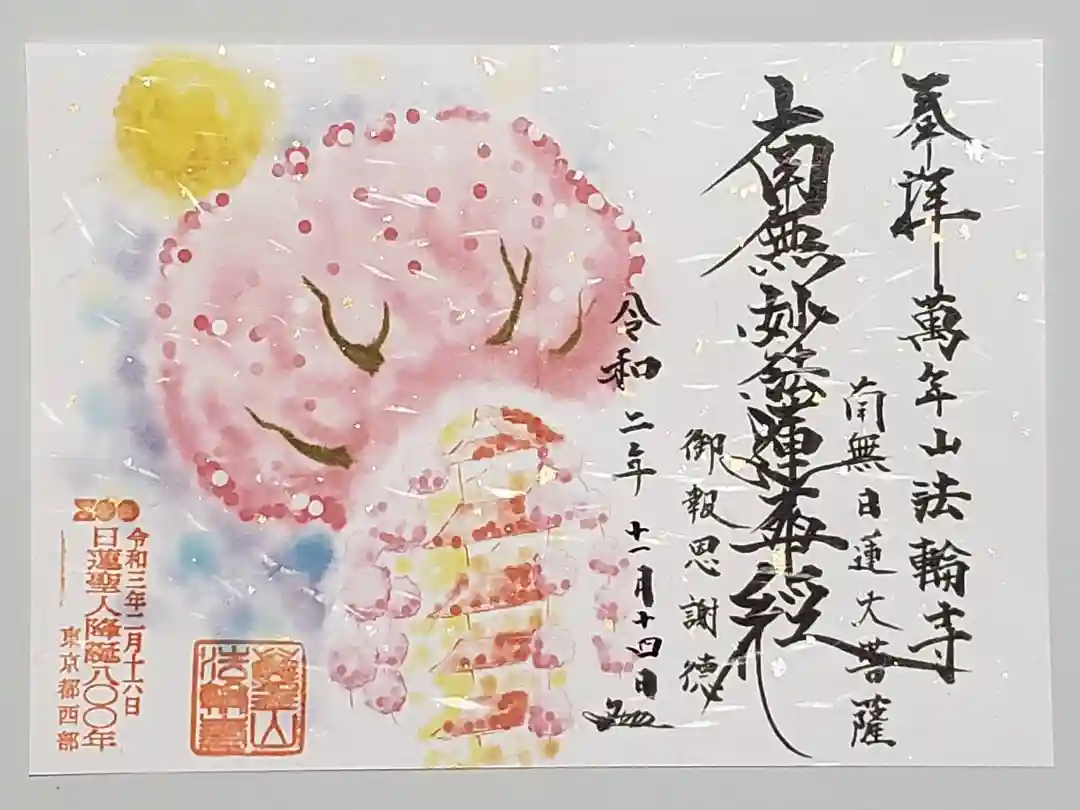 奉拝 萬年山法輪寺
南無日蓮大菩薩
南無妙法蓮華経
御報恩謝徳
令和二年 十一月十四日
800
令和三年二月十六日
日蓮聖人降誕八〇〇年
東京都西部
萬年山